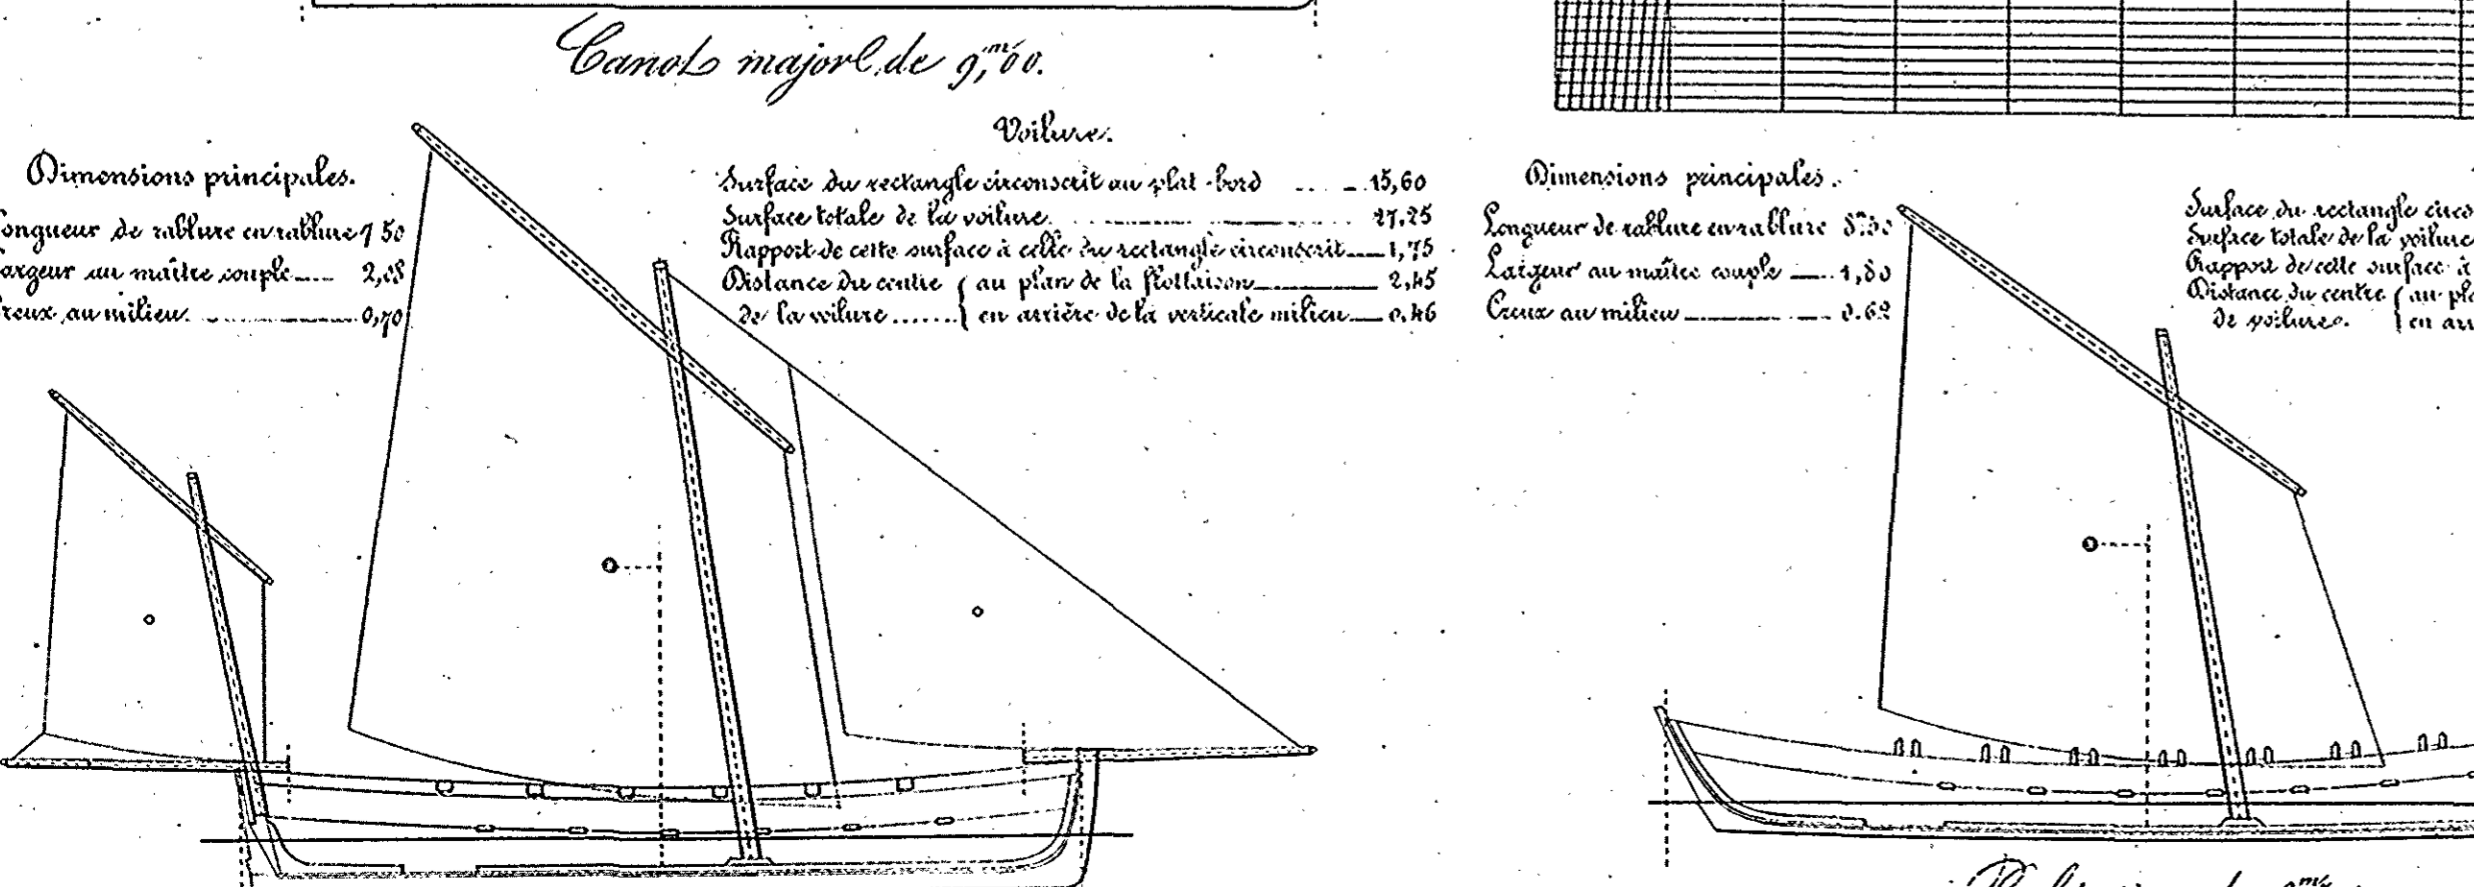 Canot major de 9,m00.
Dimensions principales.
ongueur de rablure en rablure 7 50
argeur au maître couple 2,08
reux au milieu 0,70
Voilure.
Surface du rectangle circonscrit au plat-bord 15,60
Surface totale de la voilure 27,25
Rapport de cette surface à celle du rectangle circonscrit 1,75
Distance du centre { au plan de la flottaison 2,45
de la voilure { en arrière de la verticale milieu 0,46
Dimensions principales.
Longueur de rablure en rablure
Largeur au maître couple 1,80
Creux au milieu 0.62
Surface du rectangle circo
Surface totale de la voilure
Rapport de cette surface à
Distance du centre { au pl
de voilure. { en arr